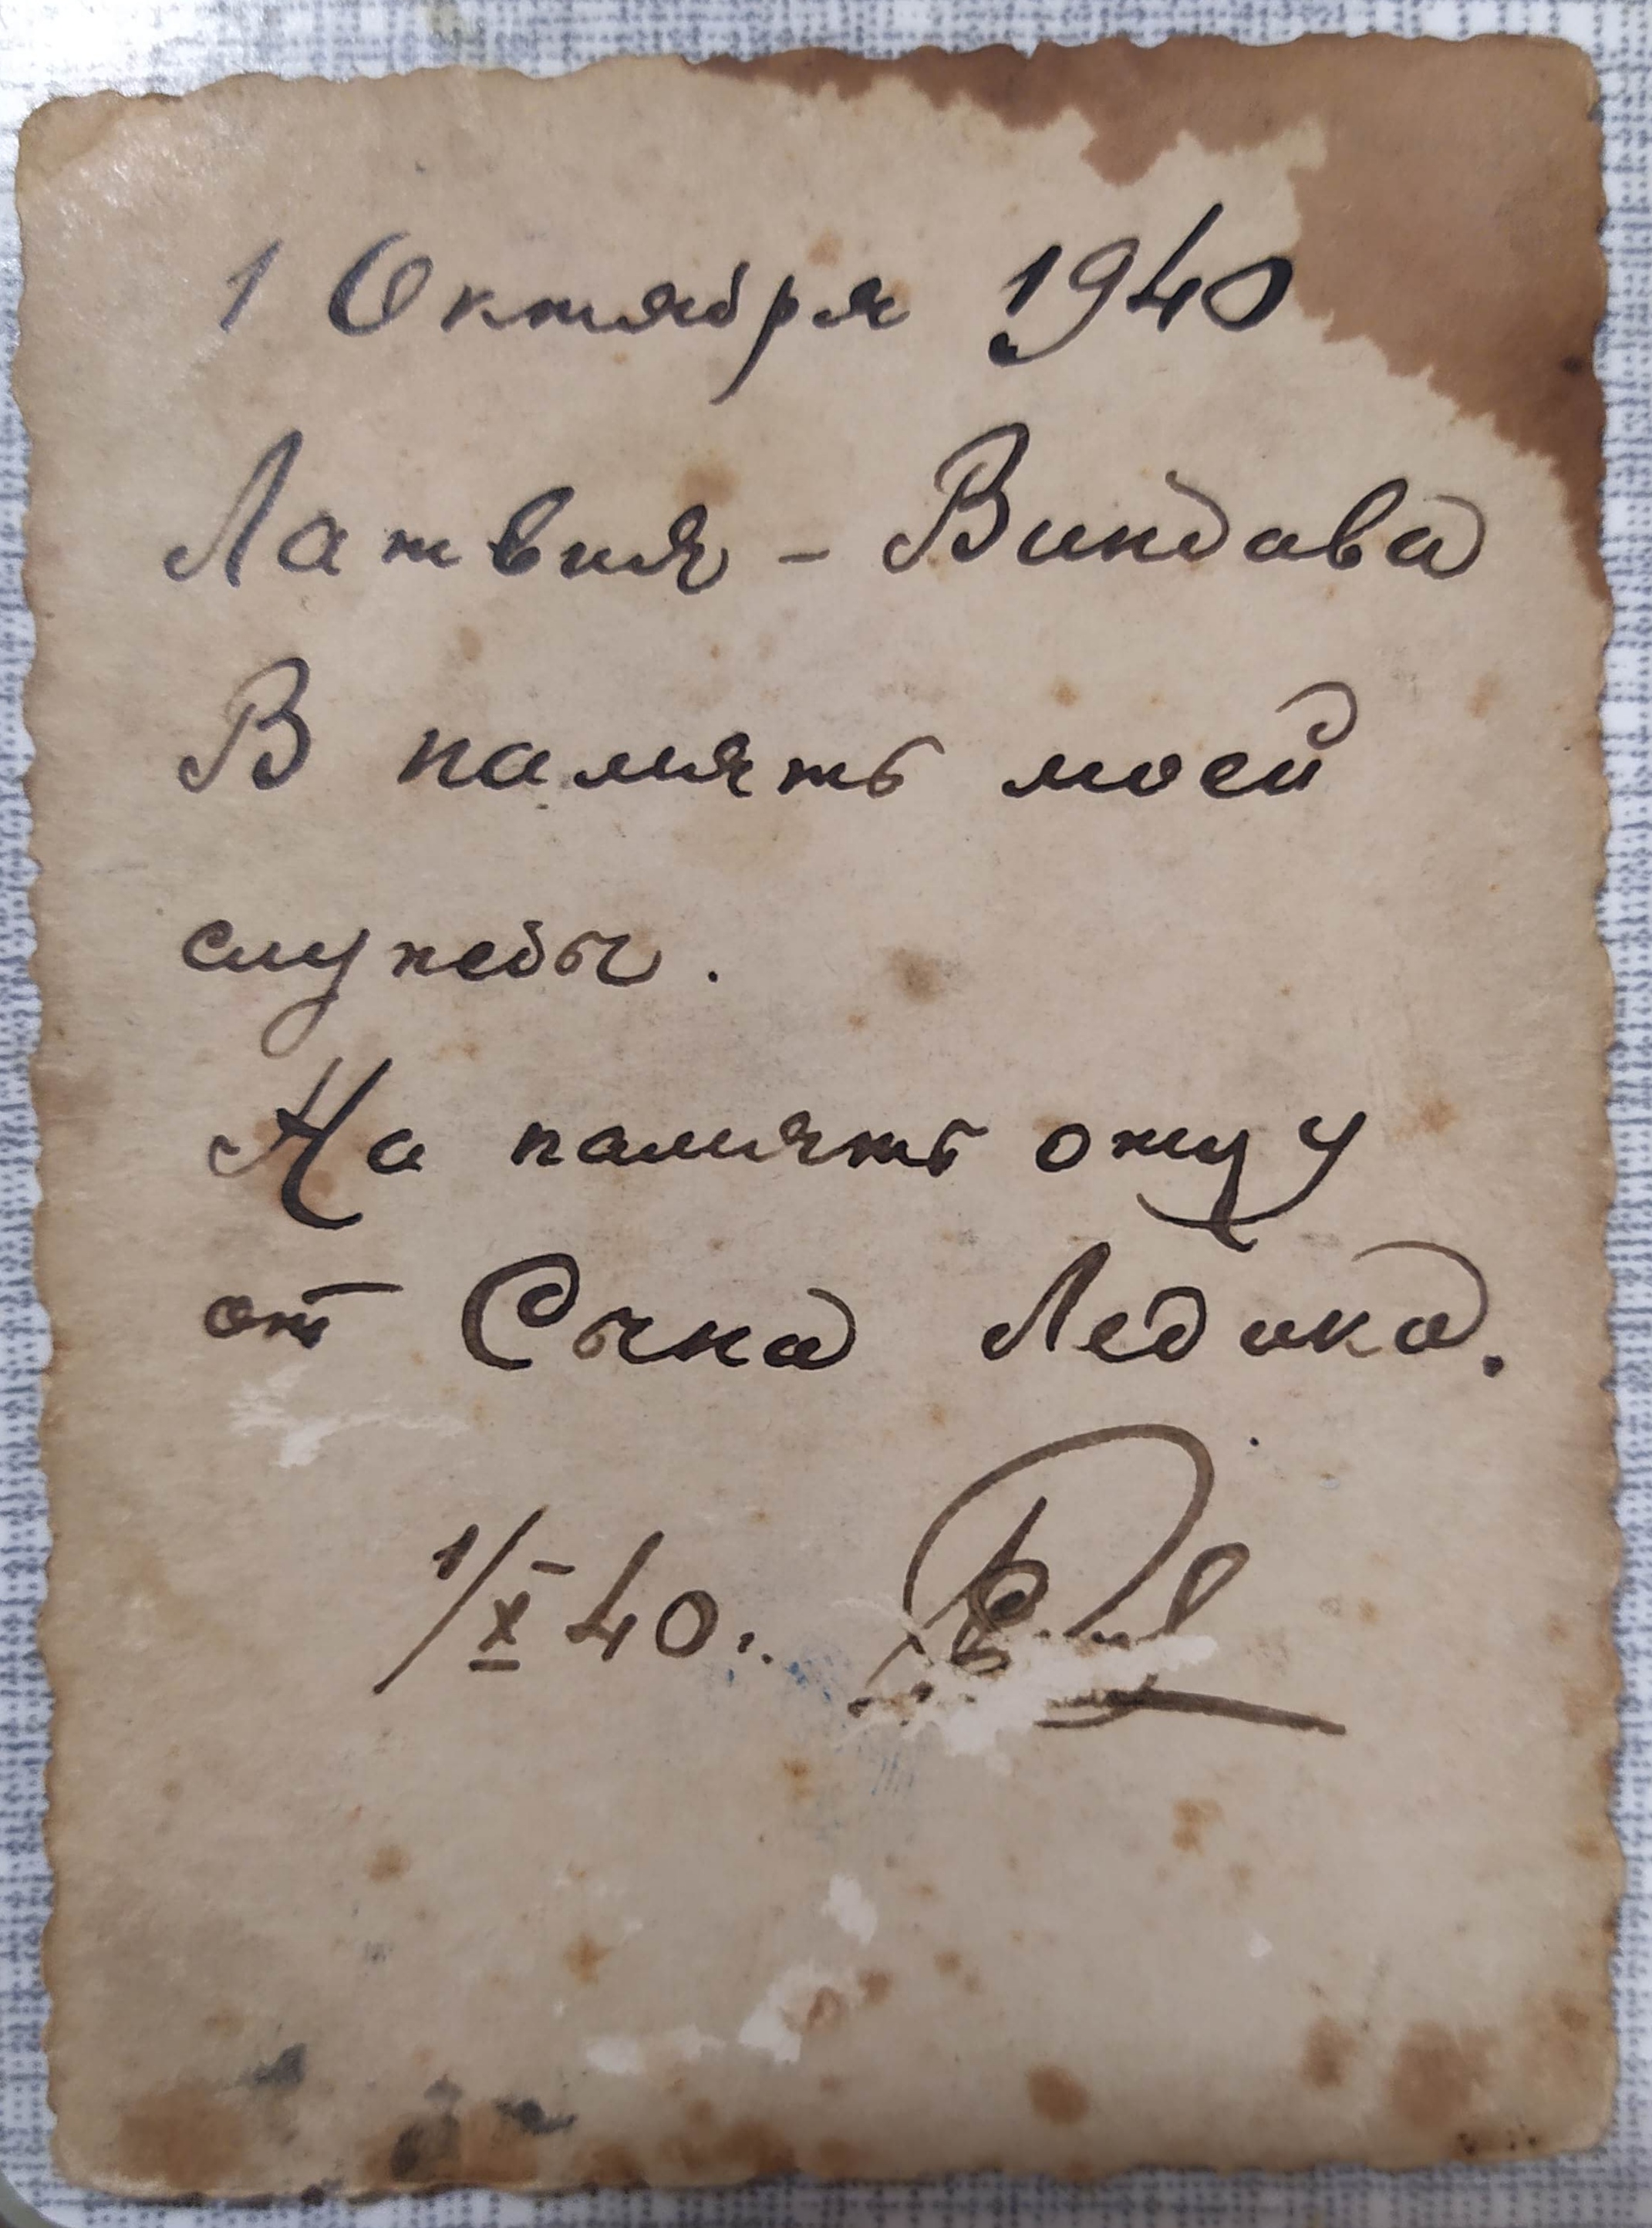 1 Октября 1940
Латвия - Виндава
В память моей
службы.
На память отцу
от Сына Ледика.
1/X 40 г.